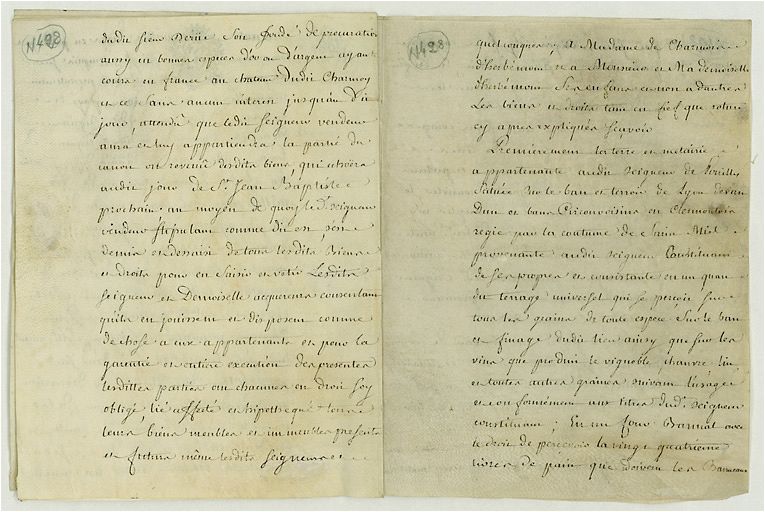 N498
dudit sieur Derüe son fondé de procuration
aussy en bonnes especes d'or ou d'argent ayant
cours en france au chateau dudit Charmoy
et ce sans aucun interest jusqu'au dit
jour, attendu que ledit seigneur vendeur
aura et luy appartiendra la partie du
canon ou revenu desdits biens qui échera
audit jour de St Jean Baptiste
prochain au moyen de quoy le dt seigneur
vendeur stipulant comme dit est, s'en
demis et dessaisi de tous lesdits Biens
et droits pour en saisir et vetir Lesdits
seigneur et Demoiselle acquereurs consentant
qu'ils en jouissent et disposent comme
de chose a eux appartenante et pour la
garentie et entiere execution des presentes
lesdittes parties ont chacunes en droit soy
obligé lié affecté et hipothequé tous
leurs biens meubles et immeubles presents
et futurs même lesdits seigneurs et
N498
quelconques, A Madame de Charmois
d'herbémont et a Monsieur et Mademoiselle
d'herbémont ses enfans et non a d'autres
Les biens et droits tant en fief que roture
cy apres expliqués sçavoir
Premierement la terre et metairie
appartenante audit seigneur de
scituée sur le ban et terroir de Lyon devant
Dun et bans Circonvoisins en Clermontois
regie par la coutume de Saint Mihl
provenante audit seigneur Constituant
de ses propres et consistante en un quart
du terrage universel qui se perçoit sur
tous les grains de toute espece sur le ban
et finage dudit lieu ainsy que sur les
vins que produit le vignoble chanvre lin
et toutes autres graines suivant l'usage
et conformément aux titres dud. seigneur
constituant; En un four Bannal avec
le droit de percevoir la vingt quatrieme
livres de pain que doivent les